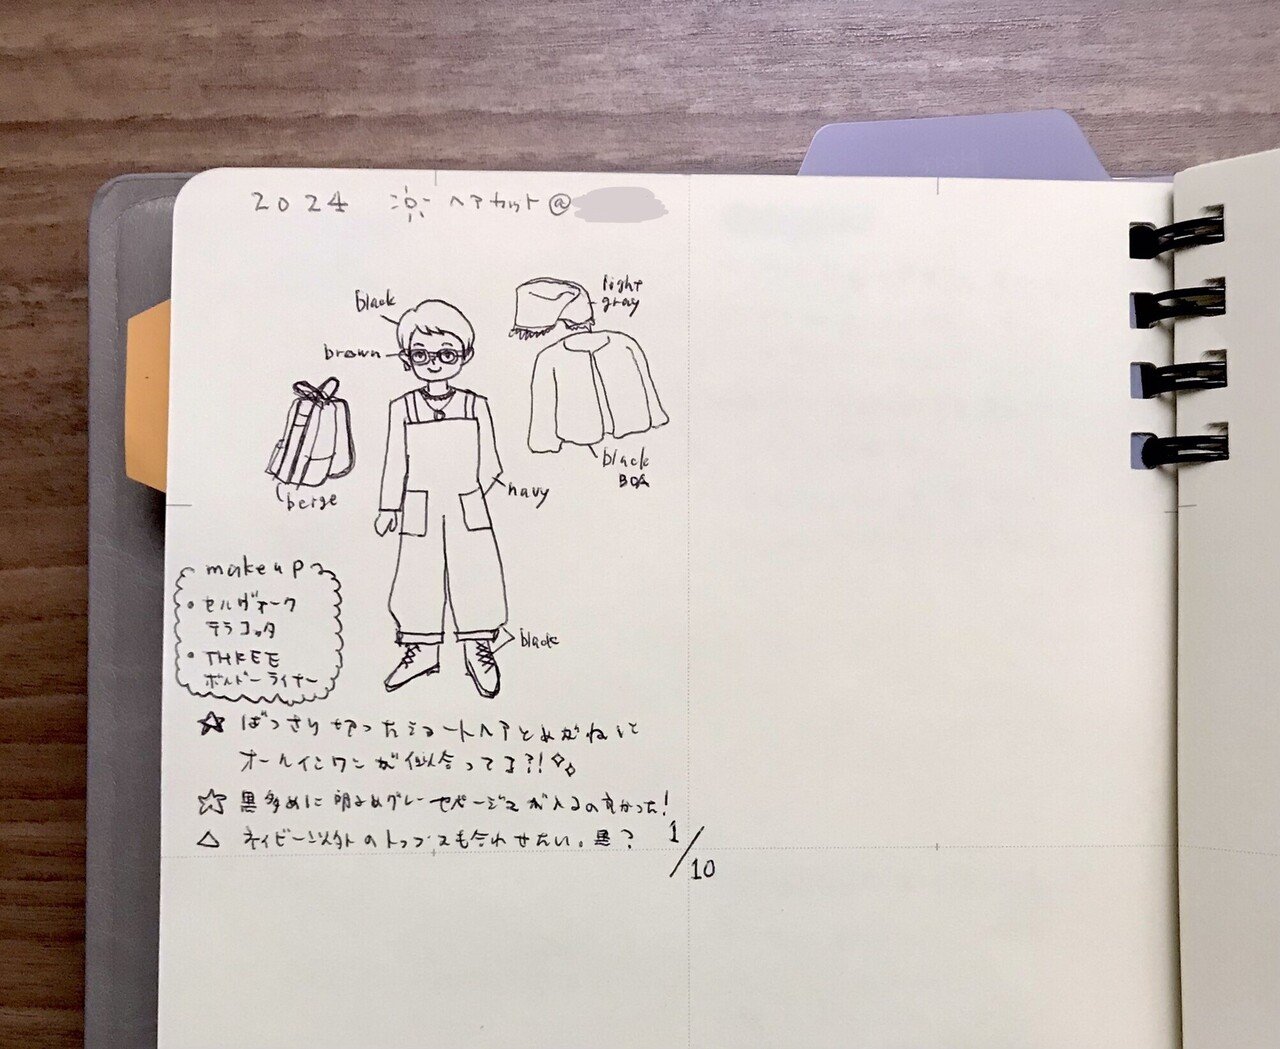 2024 ヘアカット@
black
light
gray
brown
black
BOA
navy
beige
black
makeup
・セルヴォーク
テラコッタ
・THREE
ボルドーライナー
☆ ばっさり切ったショートヘアとめがねに
オールインワンが似合ってる?!
☆ 黒多めに明るめグレーやベージュが入るの良かった!
△ ネイビー以外のトップスも合わせたい。黒?
1/10